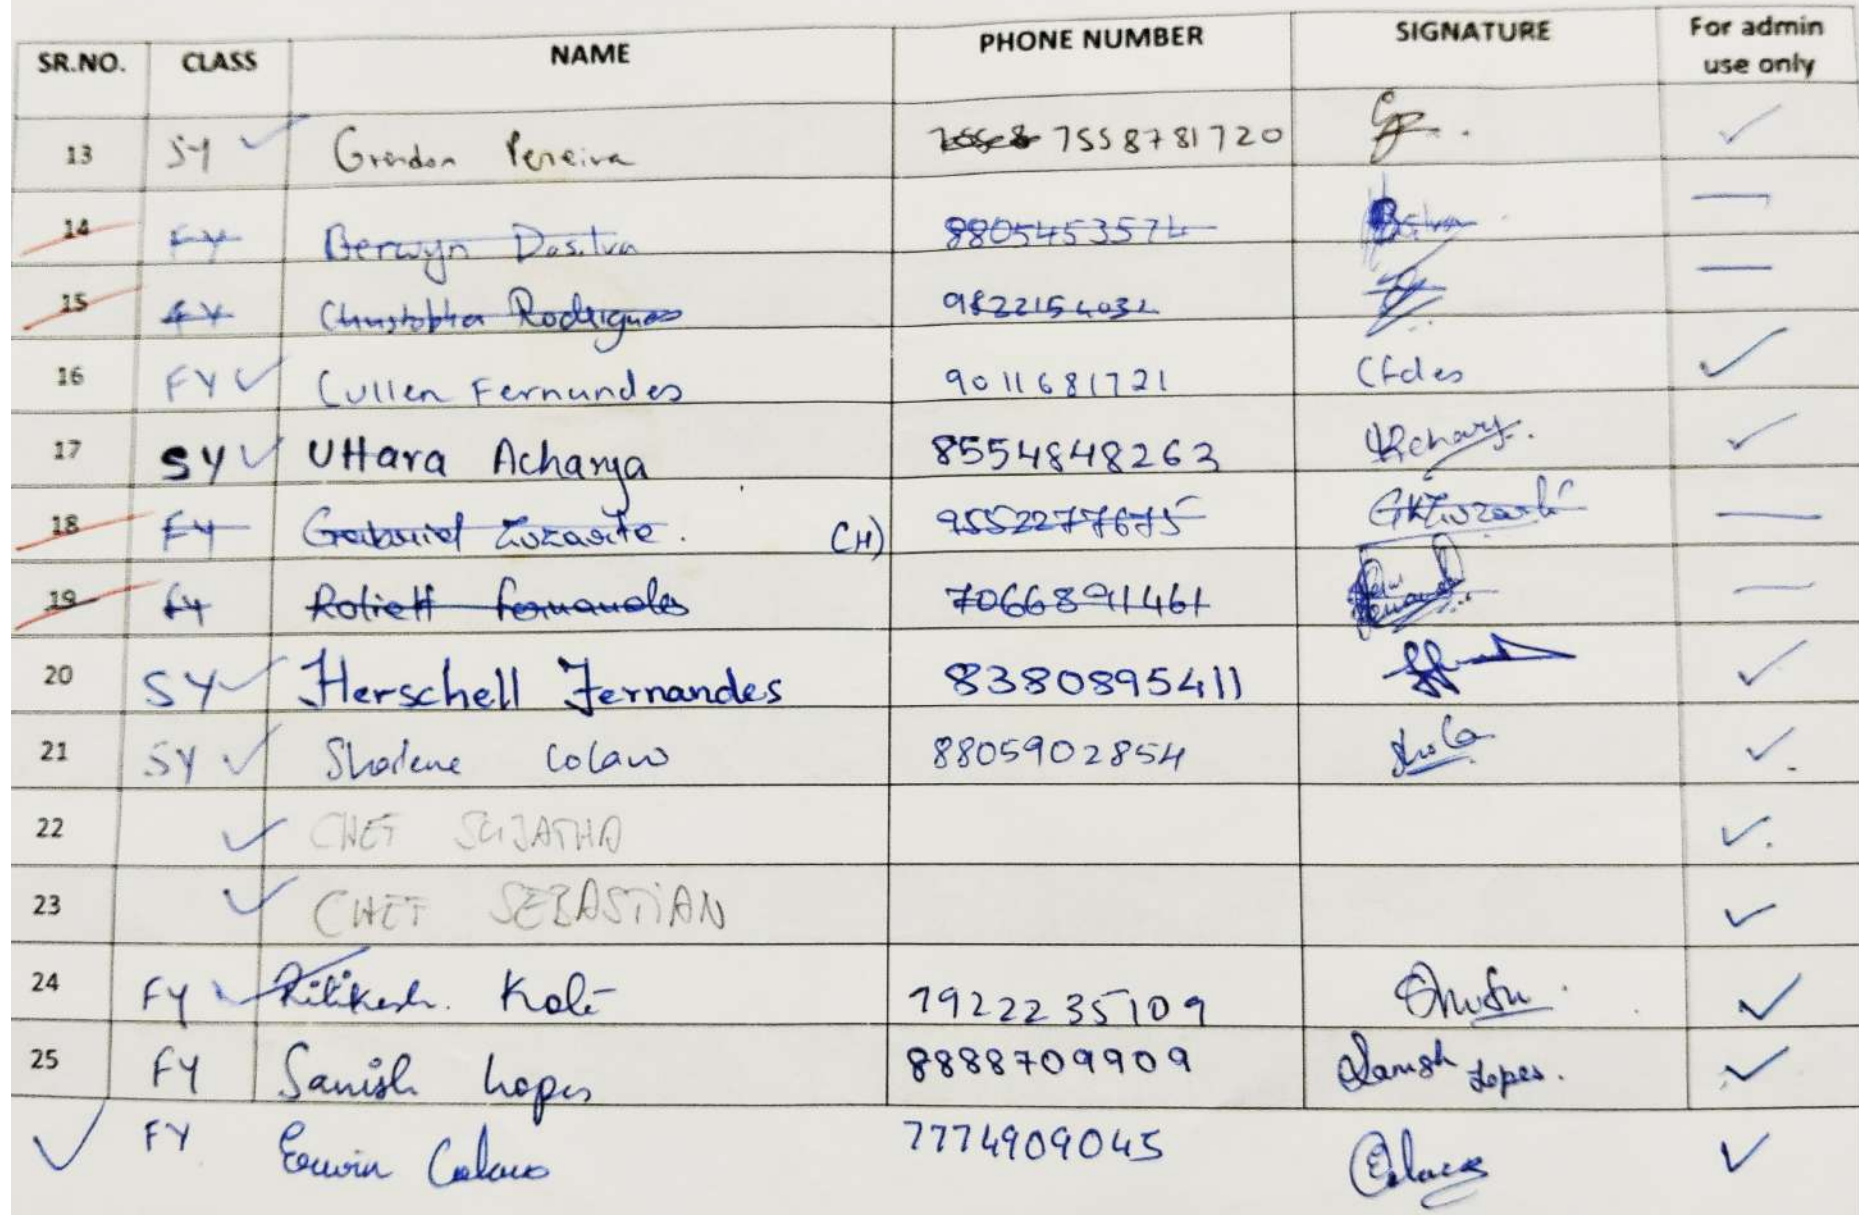 SR.NO. CLASS NAME PHONE NUMBER SIGNATURE For admin use only
13 SY Grendon Pereira 7558781720
14 FY Berwyn Dasilva 8805453574
15 FY Christopher Rodrigues 9822154032
16 FY Cullen Fernandes 9011681721 Cfdes
17 SY Uttara Acharya 8554848263
18 FY Gabriel Zuzarte. (H) 9552277675 GKZuzarte
19 FY Fernandes 70668911461
20 SY Herschell Fernandes 8380895411
21 SY Sharlene Colaco 8805902854
22 CHEF SUJATHA
23 CHEF SEBASTIAN
24 FY Ritikesh. Kole 7922235109
25 FY Sanish Lopes 8888709909 Sanish Lopes.
FY Erwin Colaco 7774909045